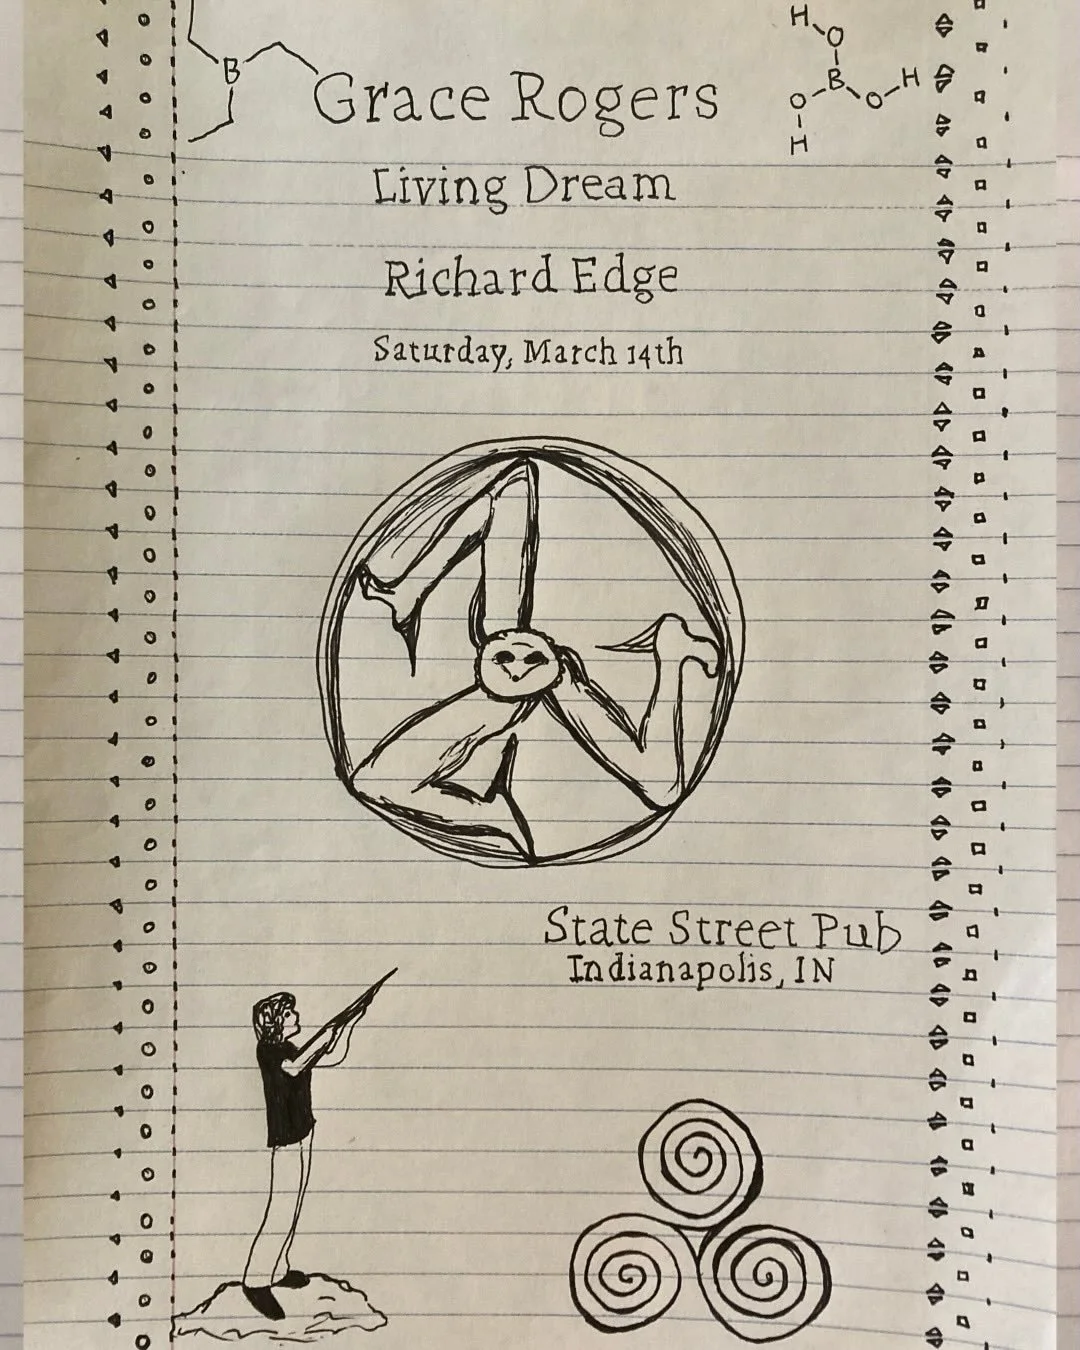 B
Grace Rogers
H
O
B
O
H
O
H
Living Dream
Richard Edge
Saturday, March 14th
State Street Pub
Indianapolis, IN